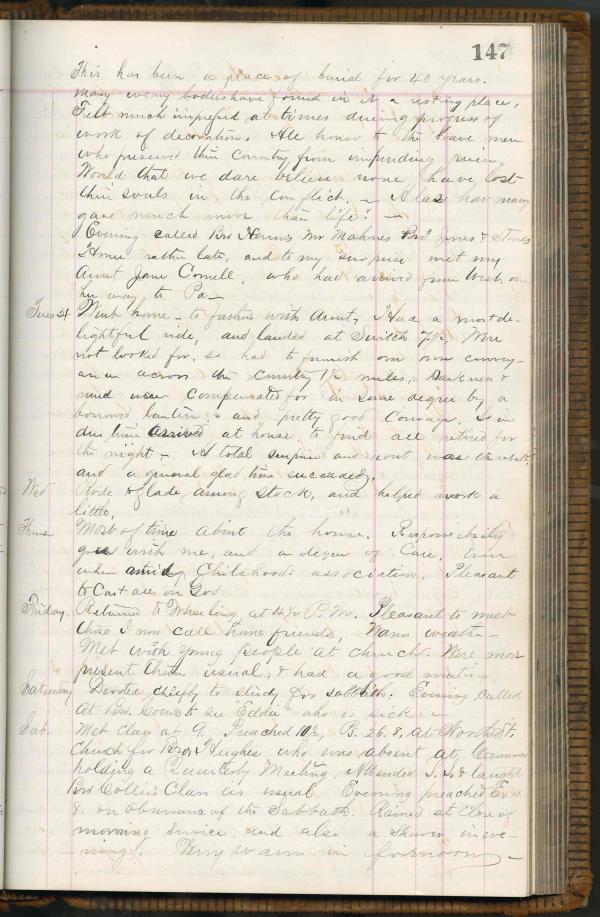 147
This has been a place of burial for 40 years.
Many weary bodies have found in it a resting place,
Felt much impressed at times during progress of
work of decoration. All honor to the brave men
who preserved their Country from impending ruin.
Would that we dare believe none have lost
their souls in the conflict. - Alas how many
gave much more than life! -
Evening called Bro Mr Bro & Stones
Home rather late, and to my surprise met my
Aunt Jane Cornell who had arrived from West, on
her way to Pa -
Tues 24 Went home - to father's with Aunt, Had a most de-
lightful ride, and landed at Switch 7½. Were
not looked for, so had to furnish our own convey-
ance across the country 1½ miles, Darkness &
mud were compensated for in some degree by a
borrowed lantern, - and pretty good Courage, & in
due time arrived at house to find all retired for
the night - A total surprise and was the result,
and a general glad time succeeded,
Wed Rode to glade among stock, and helped work a
little,
Thurs Most of time about the house. Responsibility
with me, and a degree of Care, Even
when amidst Childhoods association. Pleasant
to Cast all on God
Friday. Returned to Wheeling at 4½ P.M. Pleasant to meet
those I now call home friends, Warm weather -
Met with young people at church. Were more
present than usual, & had a good meeting.
Saturday Devoted chiefly to study for sabbath. Evening Called
At Bro. to see "Eddie" who is sick -
Sab. Met class at 9. Preached 10½, 26. 8, at North St.
Church for Bro Hughes who was absent at
holding a Quarterly Meeting. Attended S. S. & taught
Bro Collie's Class as usual. Evening preached Ex
8. on Observance of the Sabbath. Rained at close of
morning service, and also a shower in eve-
ning. Very warm in forenoon -